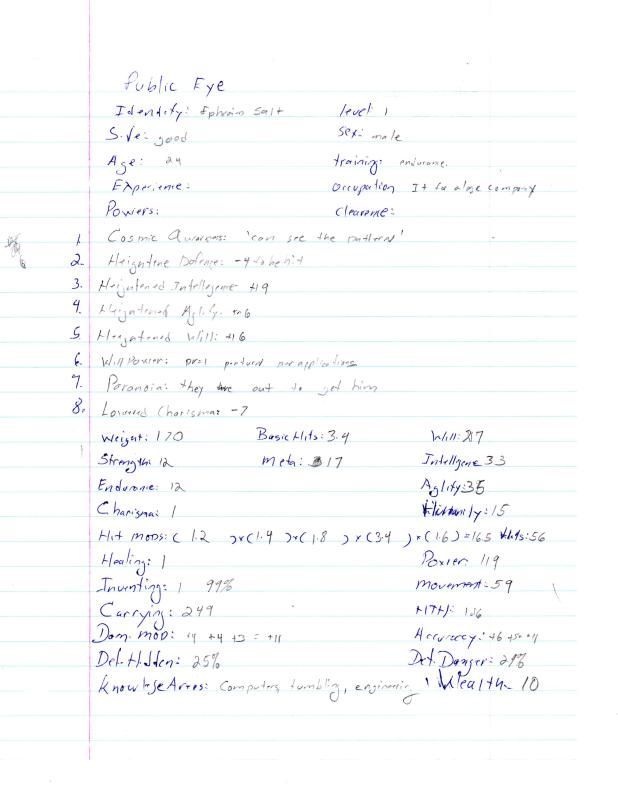 Public Eye
Identity: Ephraim Salt level 1
Side: good Sex: male
Age: 24 training: endurance.
Experience: Occupation It for a large company
Powers: Clearance:
1. Cosmic Awarness: 'can see the pattern'
2. Heightene Defense: -4 to be hit
3. Heightened Intellegence +19
4. Heightened Agility +16
5. Heightened Will: +16
6. Will Power:
7. Paranoia: they are out to get him
8. Lowered Charisma: -7
Weight: 170 Basic Hits: 3.4 Will: 27
Strength: 12 Meta: 17 Intellgenc 33
Endurance: 12 Agility: 35
Charisma: 1 15
Hit mods: ( 1.2 ) x (1.4 ) x ( 1.8 ) x (3.4 ) x (1.6) = 16.5 Hits: 56
Healing: 1 Power: 119
Inventing: 1 99% Movement: 59
Carrying: 249 HTH:
Dam. mod: +4 +4 +3 = +11 Accuracy: +6
Det. Hidden: 25% Det. Danger: 29%
Knowlege Areas: Computers, tumbling, engineering Wealth 10